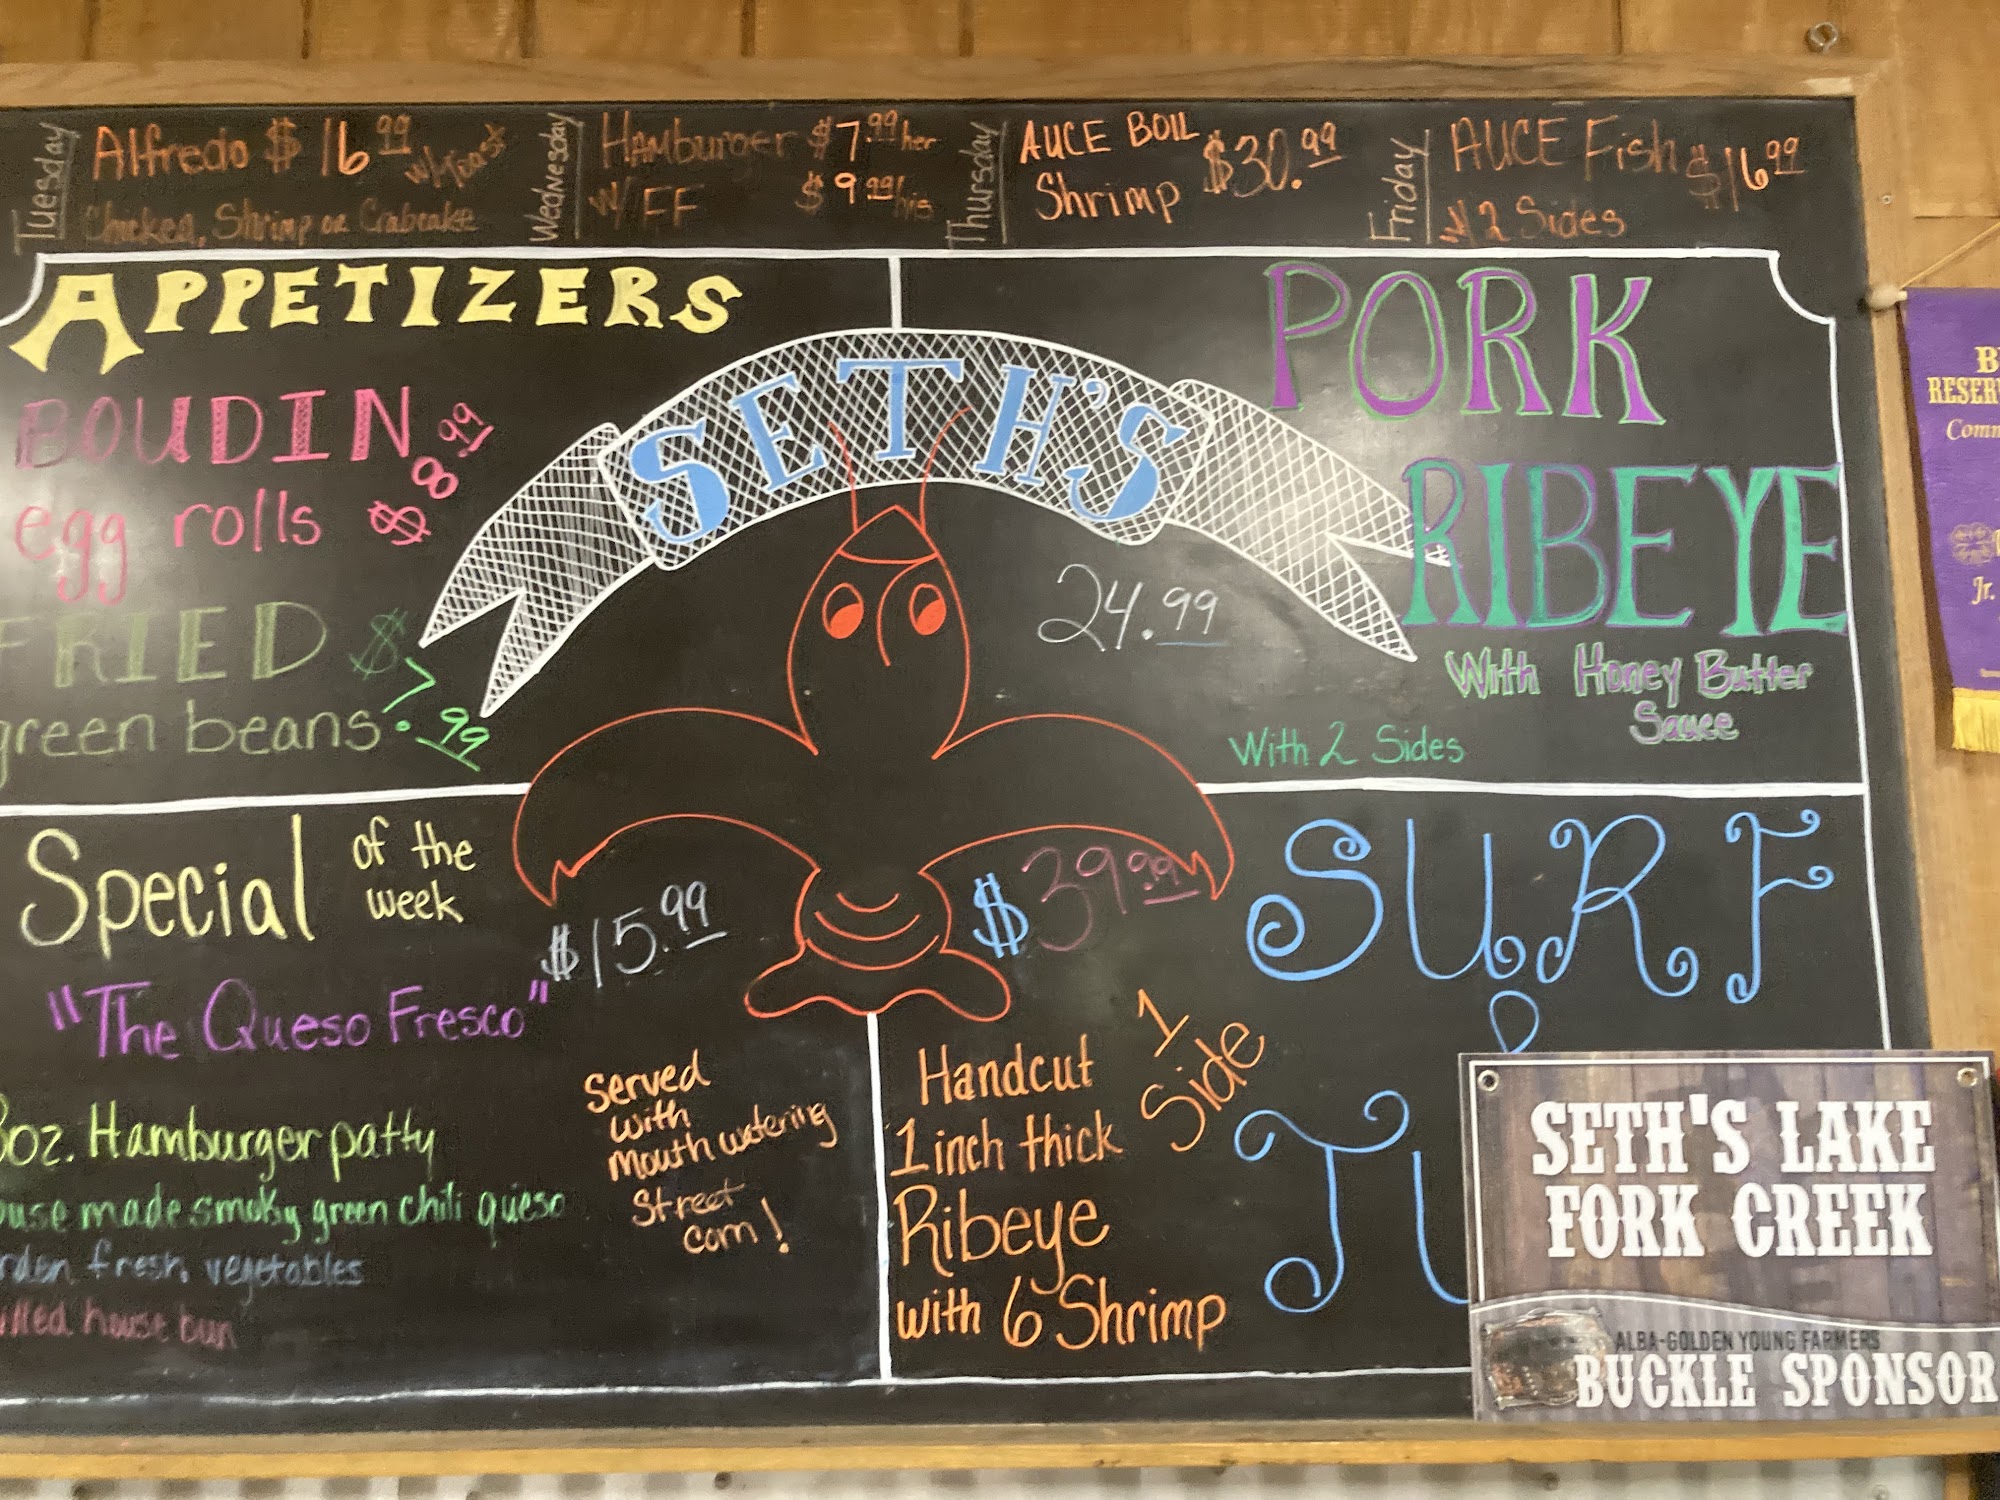 Tuesday
Alfredo $16.99 w/toast
Chicken, Shrimp or Crabcake
Wednesday
Hamburger $7.99 her
W/FF $9.99/his
Thursday
AUCE BOIL
Shrimp $30.99
Friday
AUCE Fish $16.99
w/2 Sides
APPETIZERS
BOUDIN
egg rolls $8.99
FRIED
green beans $7.99
SETH'S
PORK
RIBEYE
24.99
With Honey Butter
Sauce
With 2 Sides
Special of the
week
$15.99
"The Queso Fresco"
8oz. Hamburger patty
ouse made smoky green chili queso
rden fresh vegetables
illed house bun
served
with
mouth watering
Street
corn!
SURF
$39.99
Handcut
1 inch thick
Ribeye
with 6 Shrimp
1
Side
TU
SETH'S LAKE
FORK CREEK
ALBA-GOLDEN YOUNG FARMERS
BUCKLE SPONSOR
RESER
Comm
Jr.